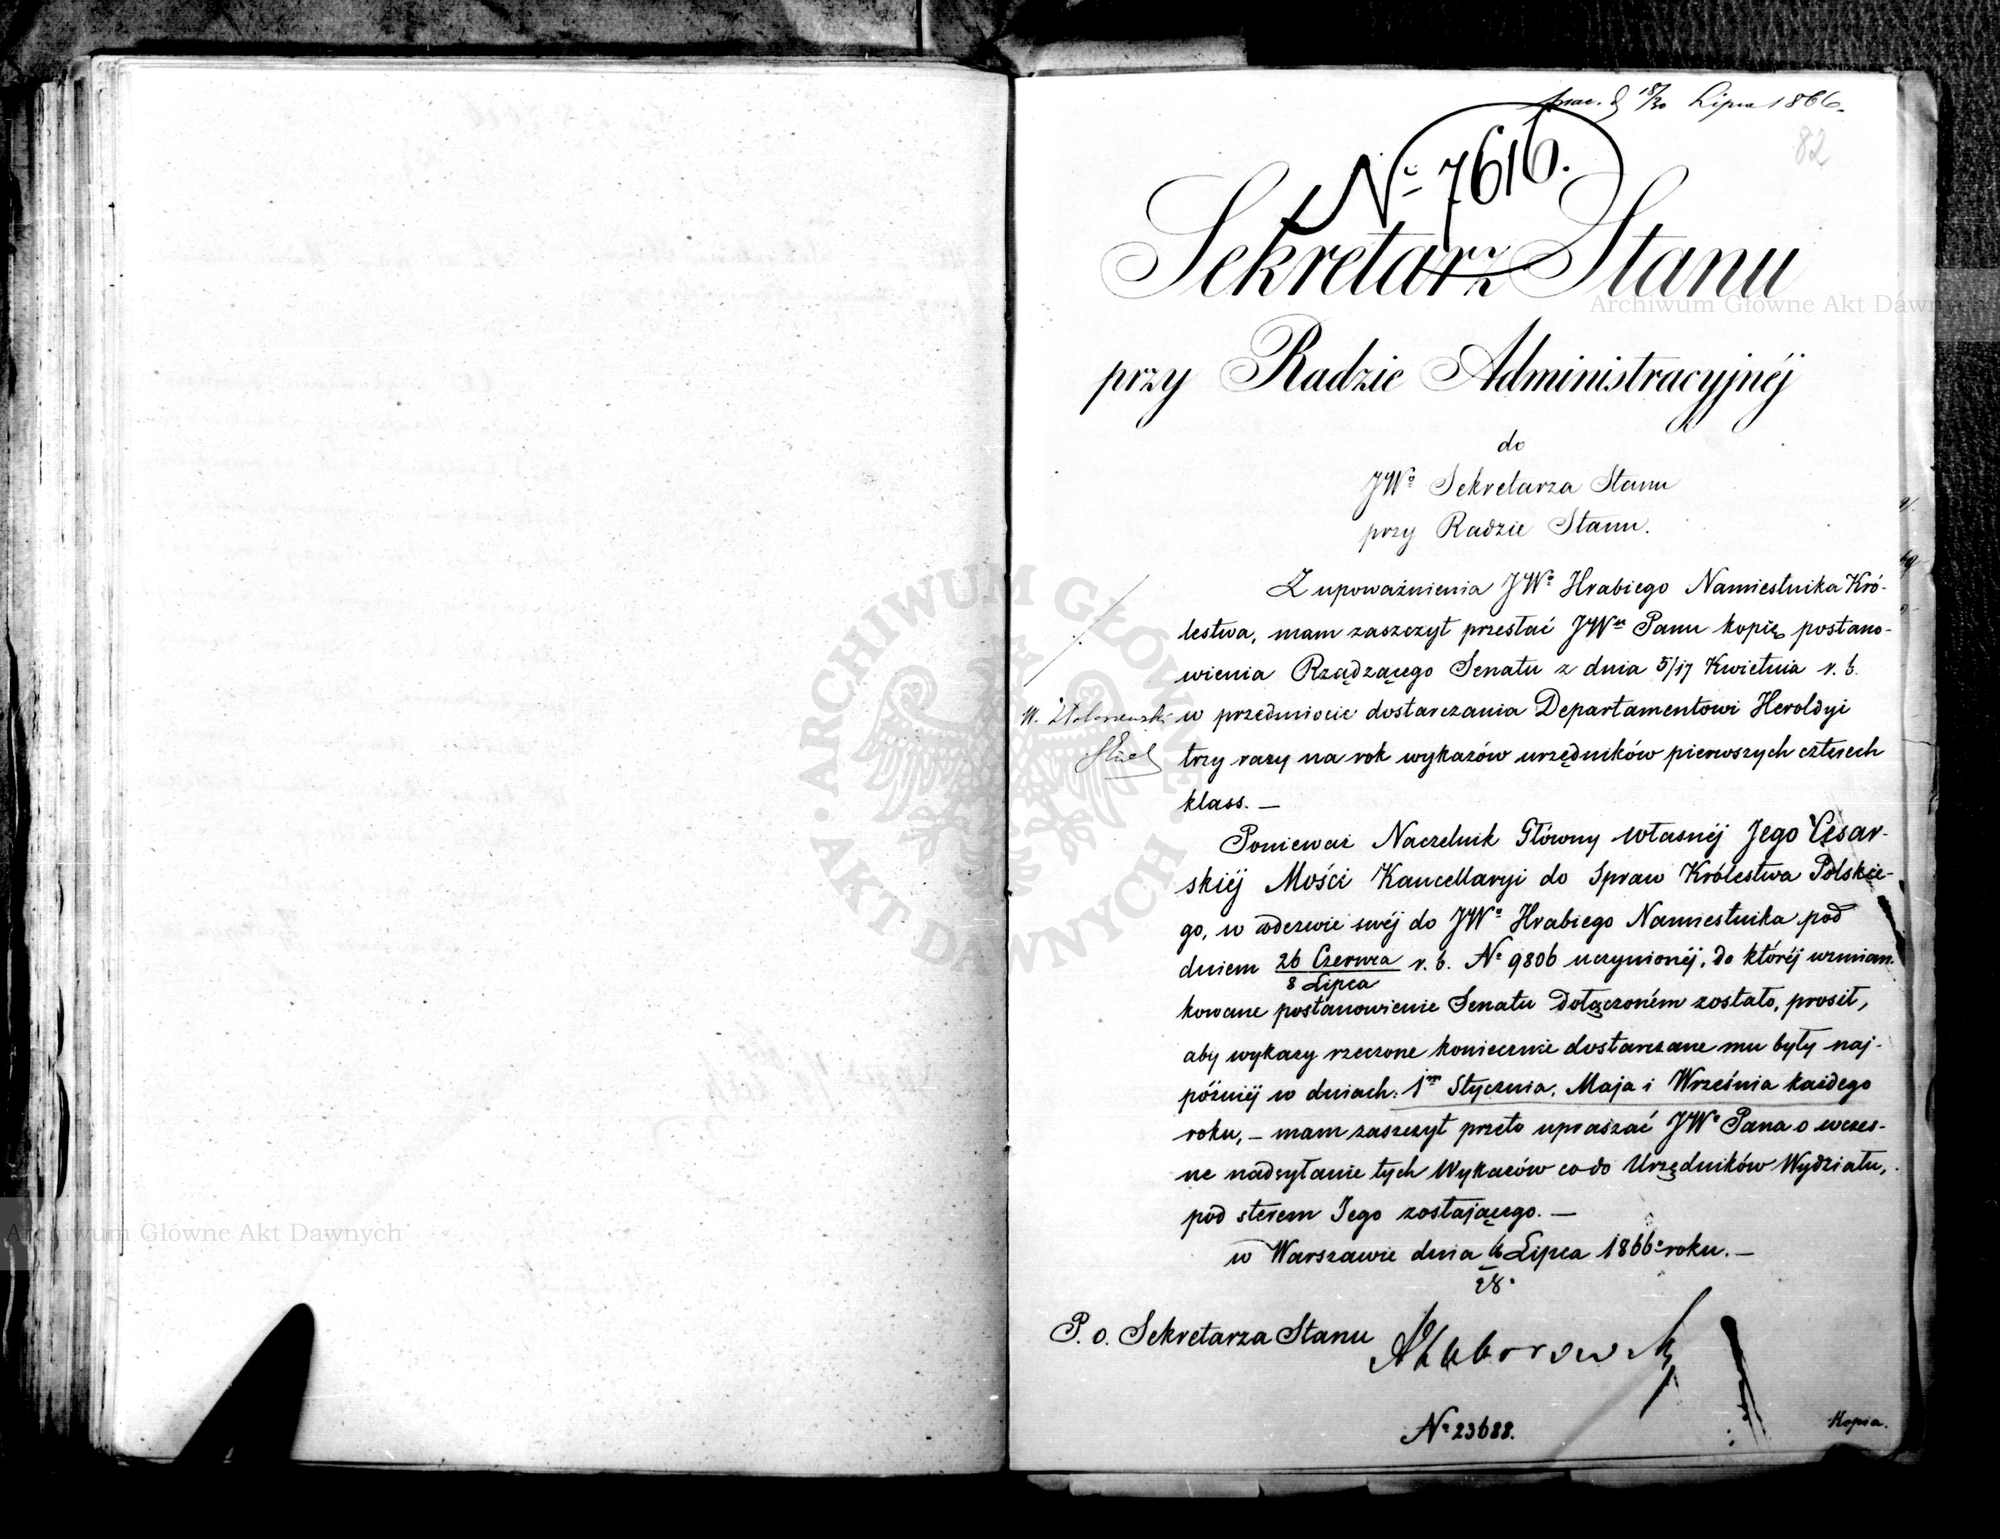 18/30 Lipca 1866.
82
№ 7616.
Sekretarz Stanu
przy Radzie Administracyjnéj
do
JWo Sekretarza Stanu
przy Radzie Stanu.
Z upoważnienia JWo Hrabiego Namiestnika Kró-
lestwa, mam zaszczyt przesłać JWu Panu kopię postano-
wienia Rządzącego Senatu z dnia 5/17 Kwietnia r. b.
w przedmiocie dostarczania Departamentowi Heroldyi
trzy razy na rok wykazów urzędników pierwszych czterech
klass. —
Ponieważ Naczelnik Główny własnéj Jego Cesar-
skiéj Mości Kancellaryi do Spraw Królestwa Polskie-
go, w odezwie swéj do JWo Hrabiego Namiestnika pod
dniem 26 Czerwca / 8 Lipca r. b. № 9806 uczynionéj, do któréj wzmian-
kowane postanowienie Senatu dołączoném zostało, prosił,
aby wykazy rzeczone koniecznie dostarczane mu były naj-
późniéj w dniach: 1m Stycznia, Maja i Września każdego
roku, — mam zaszczyt przeto upraszać JWo Pana o wczes-
ne nadsyłanie tych Wykazów co do Urzędników Wydziału,
pod sterem Jego zostającego. —
w Warszawie dnia 16/28 Lipca 1866o roku. —
P. o. Sekretarza Stanu
№ 23688.
Kopia.
Archiwum Główne Akt Dawnych
ARCHIWUM GŁÓWNE · AKT DAWNYCH ·
Archiwum Główne Akt Dawnych